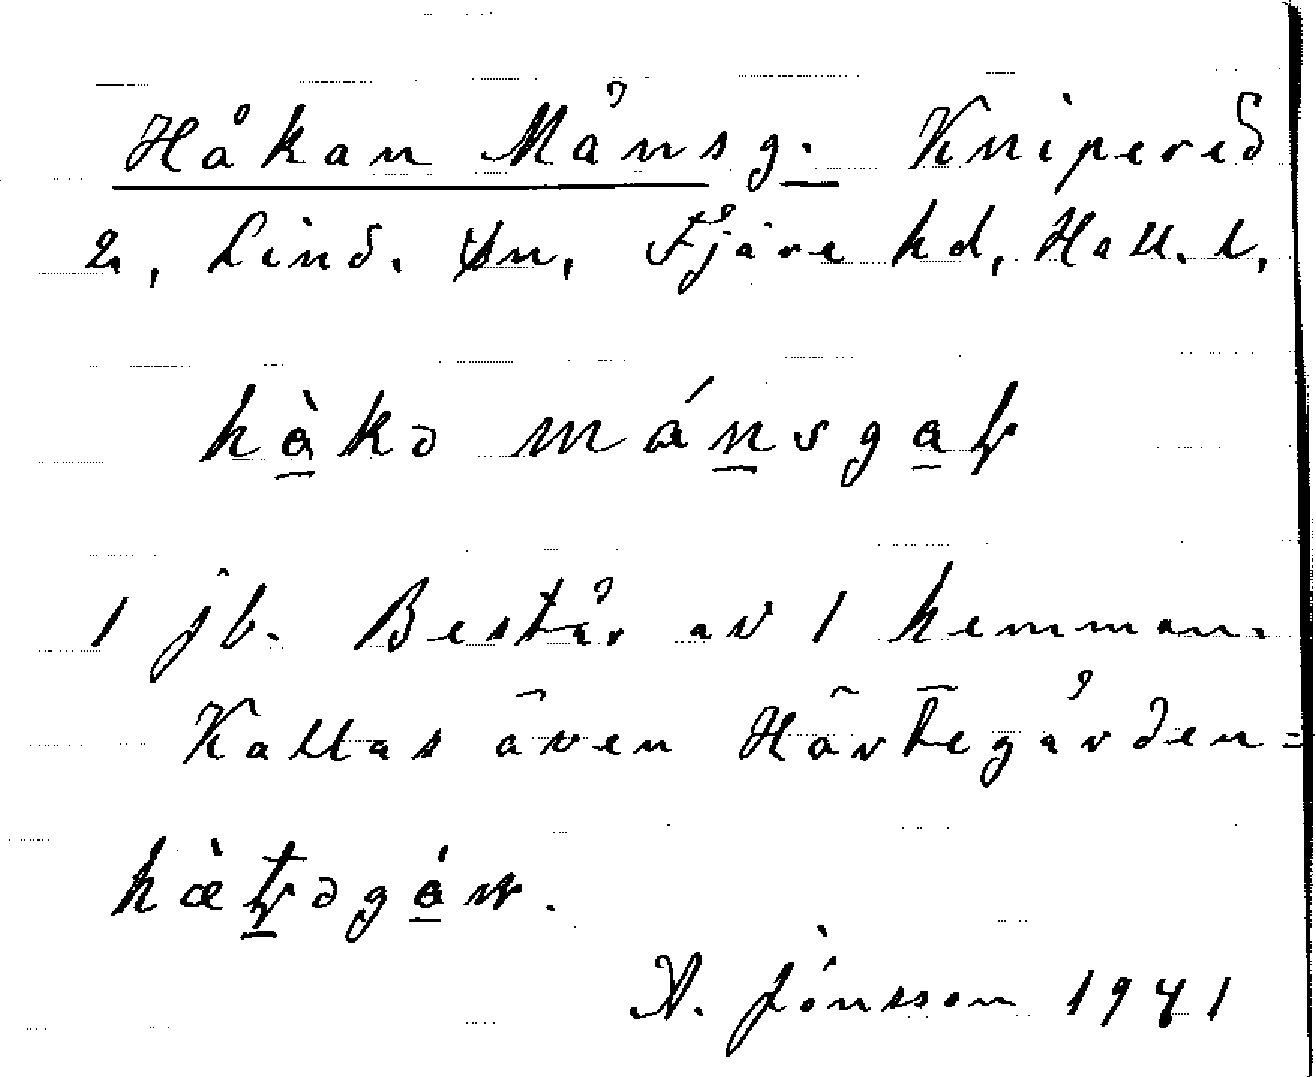 Håkan Månsg. Knipered
2, Lind. sn, Fjäre hd, Hall. l,
hàkə mánsgaṛ
1 jb. Består av 1 hemman.
Kallas även Härtegården=
hæ̀ṭəgáṛ.
A. Jónsson 1941